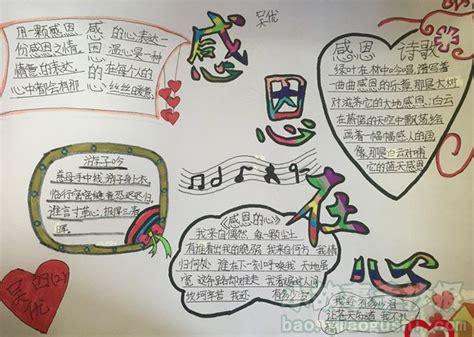 吴优
感恩在心
用一颗感恩
份感恩之情
情意的表达
心中都会有那
感恩的心
的心表达一
温心是一种
在每个人的
丝丝暖意
感恩 诗歌
绿叶在林中吟唱,谱写着
一曲曲感恩的乐章,那是大树
对滋养它的大地感恩;白云
在蔚蓝的天空中飘荡绘
画着一幅幅感人的图
像那是白云对哺
它的蓝天感恩
游子吟
慈母手中线 游子身上衣
临行密密缝 意恐迟迟归
谁言寸草心 报得三春
晖
《感恩的心》
我来自偶然 每一颗尘土
有谁看出我的脆弱 我来自何方 我情
归何处 谁在下一刻呼唤我 天地虽
宽 这条路却难走 我看遍这人间
坎坷辛苦 我还 有多少
我还有多少泪
让苍天知道 我不认
吴优